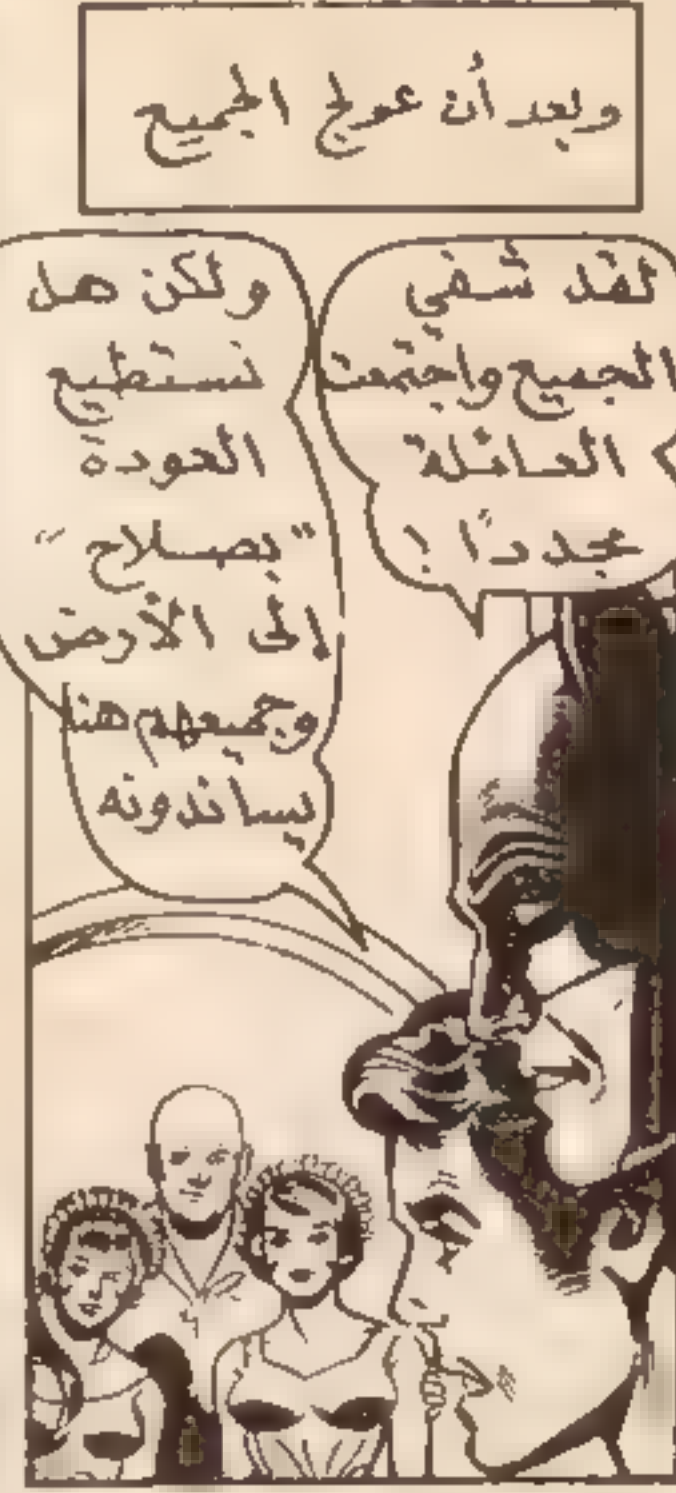 وبعد أن عولج الجميع
لقد شفي
الجميع واجتمعت
العائلة
مجددًا !
ولكن هل
نستطيع
العودة
"بصلاح"
إلى الأرض
وجميعهم هنا
يساندونه